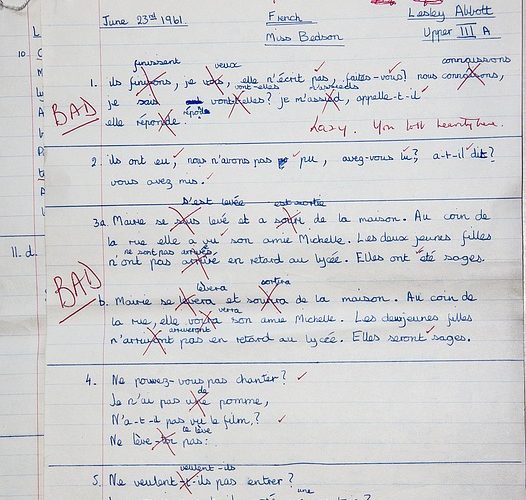 June 23rd 1961. French Lesley Abbott
Miss Bedson Upper III A
finissent veux connaissons
1. ils finirons, je vais, elle n'écrit pas, faites-vous? nous connaisons,
vont-elles m'assieds
je sais vont-elles? je m'assied, appelle-t-il
BAD
répond
elle réponde.
Lazy. You lost heavily here.
2. ils ont eu, nous n'avons pas pu, avez-vous lu? a-t-il dit?
vous avez mis.
s'est levée est sortie
3a. Marie se suis levé et a sorti de la maison. Au coin de
la rue elle a vu son amie Michelle. Les deux jeunes filles
ne sont pas arrivées
n'ont pas arrivé en retard au lycée. Elles ont été sages.
BAD
lèvera sortira
b. Marie se levera et sortira de la maison. Au coin de
verra
la rue, elle voira son amie Michelle. Les deux jeunes filles
arriveront
n'arriveront pas en retard au lycée. Elles seront sages.
4. Ne pouvez-vous pas chanter?
de
Je n'ai pas une pomme,
N'a-t-il pas vu le film?
te lève
Ne lève-toi pas.
veulent-ils
5. Ne veulent-t-ils pas entrer?
une
L
10.
C
M
11. d.